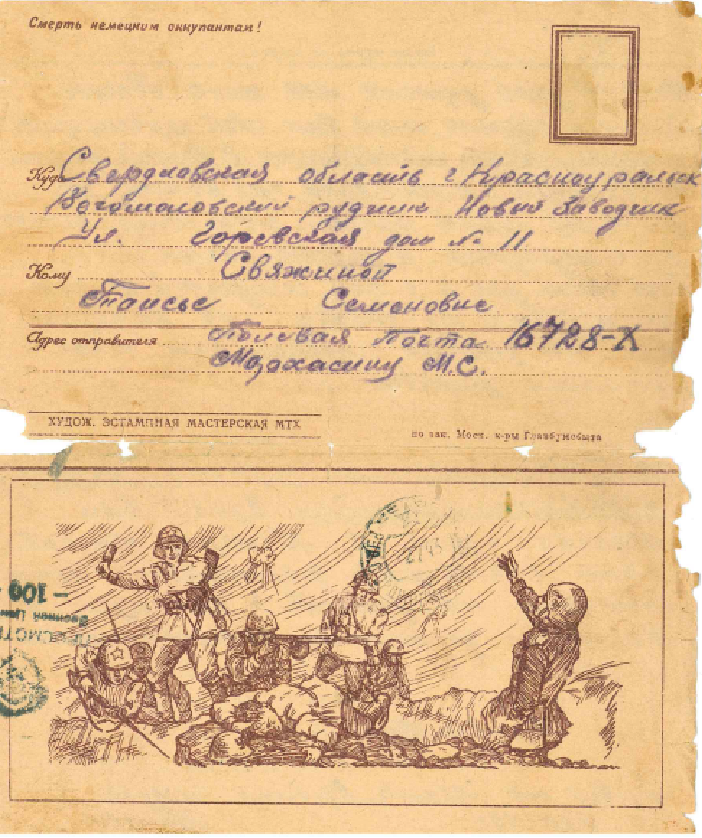 Смерть немецким оккупантам!
Куда Свердловская область г Красноуральск
Богомоловский рудник Новый Заводчик
Ул. Горевская дом № 11
Кому Свяжиной
Таисье Семеновне
Адрес отправителя Полевая почта 16728-Х
М.С.
ХУДОЖ. ЭСТАМПНАЯ МАСТЕРСКАЯ МТХ
по зак. Моск. к-ры Главбумсбыта
— 100 —
Военной Цен
ПРОСМОТР